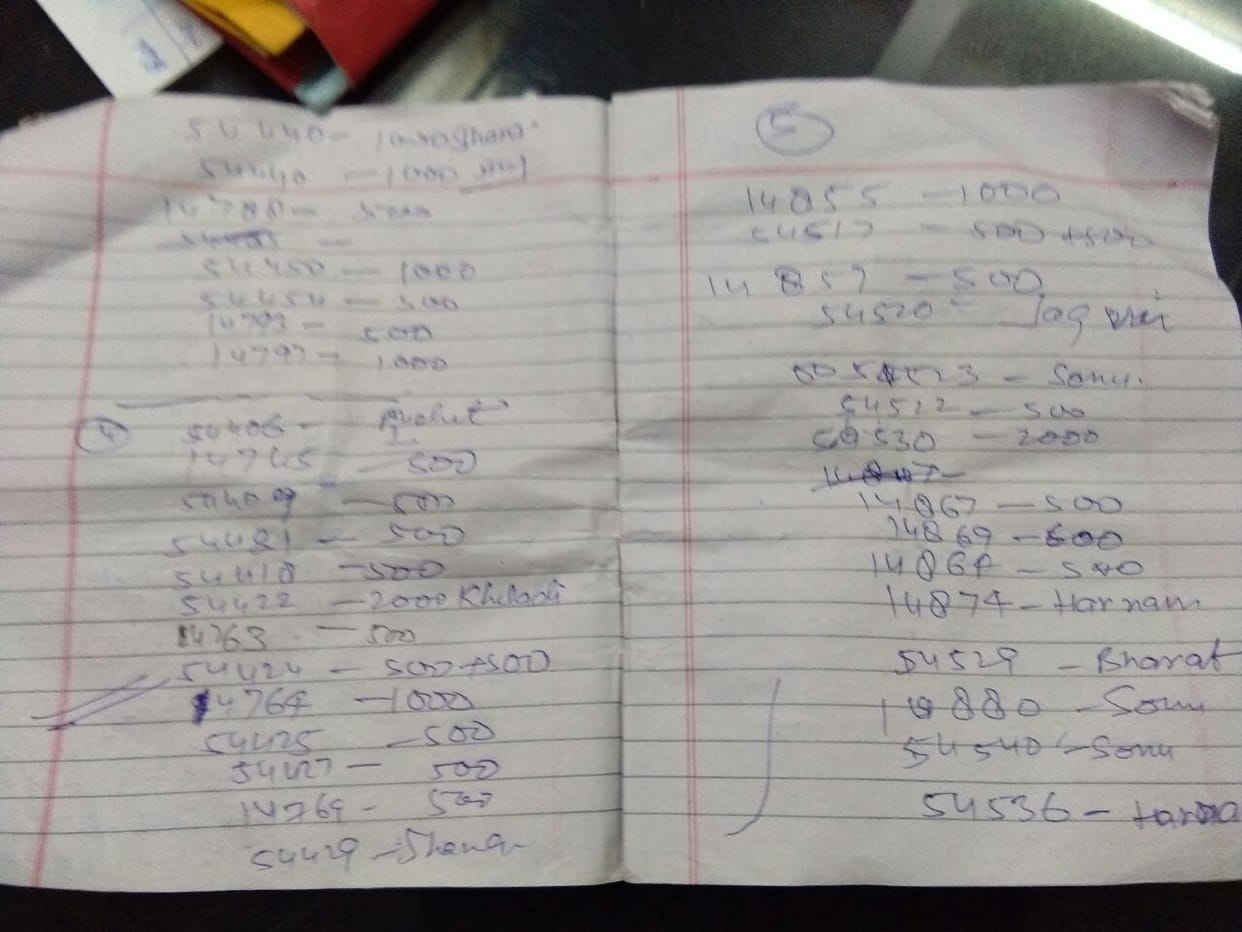 54440 -
54440 - 1000
14788 - 5000
54450 - 1000
54454 - 500
14793 - 500
14797 - 1000
4
54406 -
14745 - 500
54409 - 500
54421 - 500
54418 - 500
54422 - 2000 Khiladi
14763 - 500
54424 - 500 + 500
14764 - 1000
54425 - 500
54427 - 500
14769 - 500
54429 -
5
14855 - 1000
54517 - 500 + 500
14857 - 500
54520 -
- Sonu.
54522 - 500
54530 - 2000
14867 - 500
14869 - 500
14864 - 500
14874 - Harnam
54529 - Bharat
14880 - Sonu
54540 - Sonu
54536 -